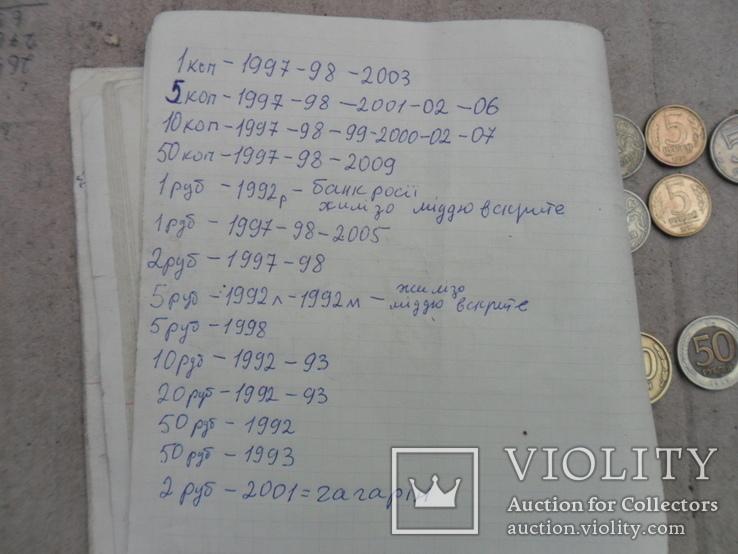 1 коп - 1997 - 98 - 2003
5 коп - 1997 - 98 - 2001 - 02 - 06
10 коп - 1997 - 98 - 99 - 2000 - 02 - 07
50 коп - 1997 - 98 - 2009
1 руб - 1992р - банк росії
жилізо міддю вскрите
1 руб - 1997 - 98 - 2005
2 руб - 1997 - 98
5 руб - 1992л - 1992м - жилізо
міддю вскрите
5 руб - 1998
10 руб - 1992 - 93
20 руб - 1992 - 93
50 руб - 1992
50 руб - 1993
2 руб - 2001 = гагарін
5
5
5
50
VIOLITY
Auction for Collectors
auction.violity.com